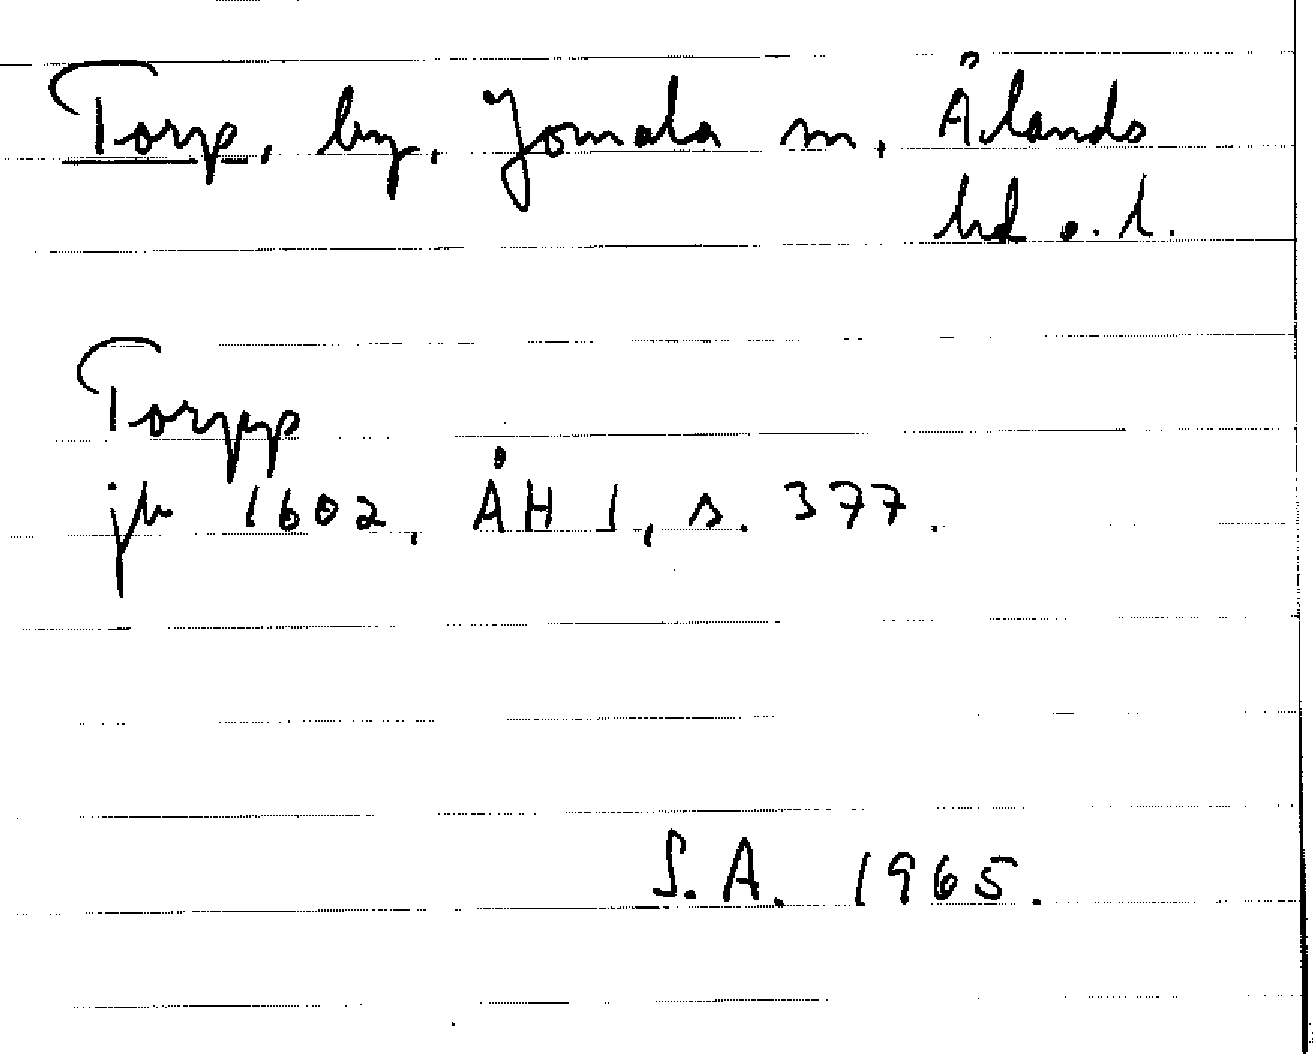 Torp, by. Jomala sn, Ålands
hd o. l.
Torpp
jb 1602, ÅH 1, s. 377.
S.A. 1965.